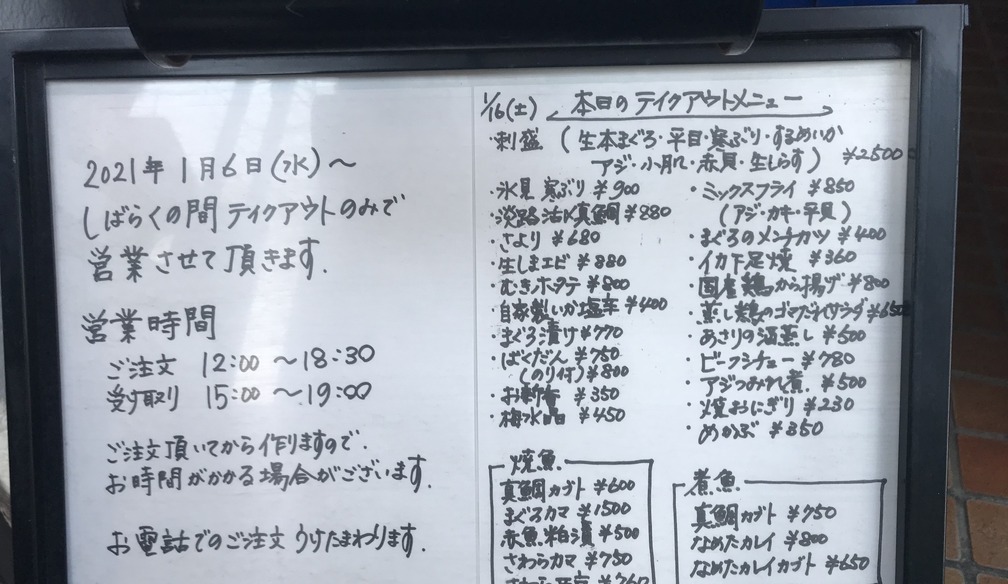 2021年 1月6日(水)～
しばらくの間 テイクアウトのみで
営業させて頂きます.
営業時間
ご注文 12:00 ～18:30
受け取り 15:00 ～19:00
ご注文頂いてから作りますので.
お時間がかかる場合がございます.
お電話でのご注文 うけたまわります.
1/16(土) 本日のテイクアウトメニュー
・刺盛 (生本まぐろ・平目・寒ぶり・するめいか
アジ・小肌・赤貝・生しらす) ¥2500
・氷見 寒ぶり ¥900
・淡路活〆真鯛 ¥880
・さより ¥680
・生しまエビ ¥880
・むきホタテ ¥800
・自家製いか塩辛 ¥400
・まぐろ漬け ¥770
・ばくだん ¥750
(のり付) ¥800
・お新香 ¥350
・梅水晶 ¥450
・ミックスフライ ¥850
(アジ・カキ・平貝)
・まぐろのメンチカツ ¥400
・イカ下足焼 ¥360
・国産鶏から揚げ ¥800
・蒸し鶏のゴマだれサラダ ¥650
・あさりの酒蒸し ¥500
・ビーフシチュー ¥780
・アジつみれ煮 ¥500
・焼おにぎり ¥230
・めかぶ ¥350
焼魚
真鯛カブト ¥600
まぐろカマ ¥1500
赤魚粕漬 ¥500
さわらカマ ¥750
煮魚
真鯛カブト ¥750
なめたカレイ ¥800
なめたカレイカブト ¥650